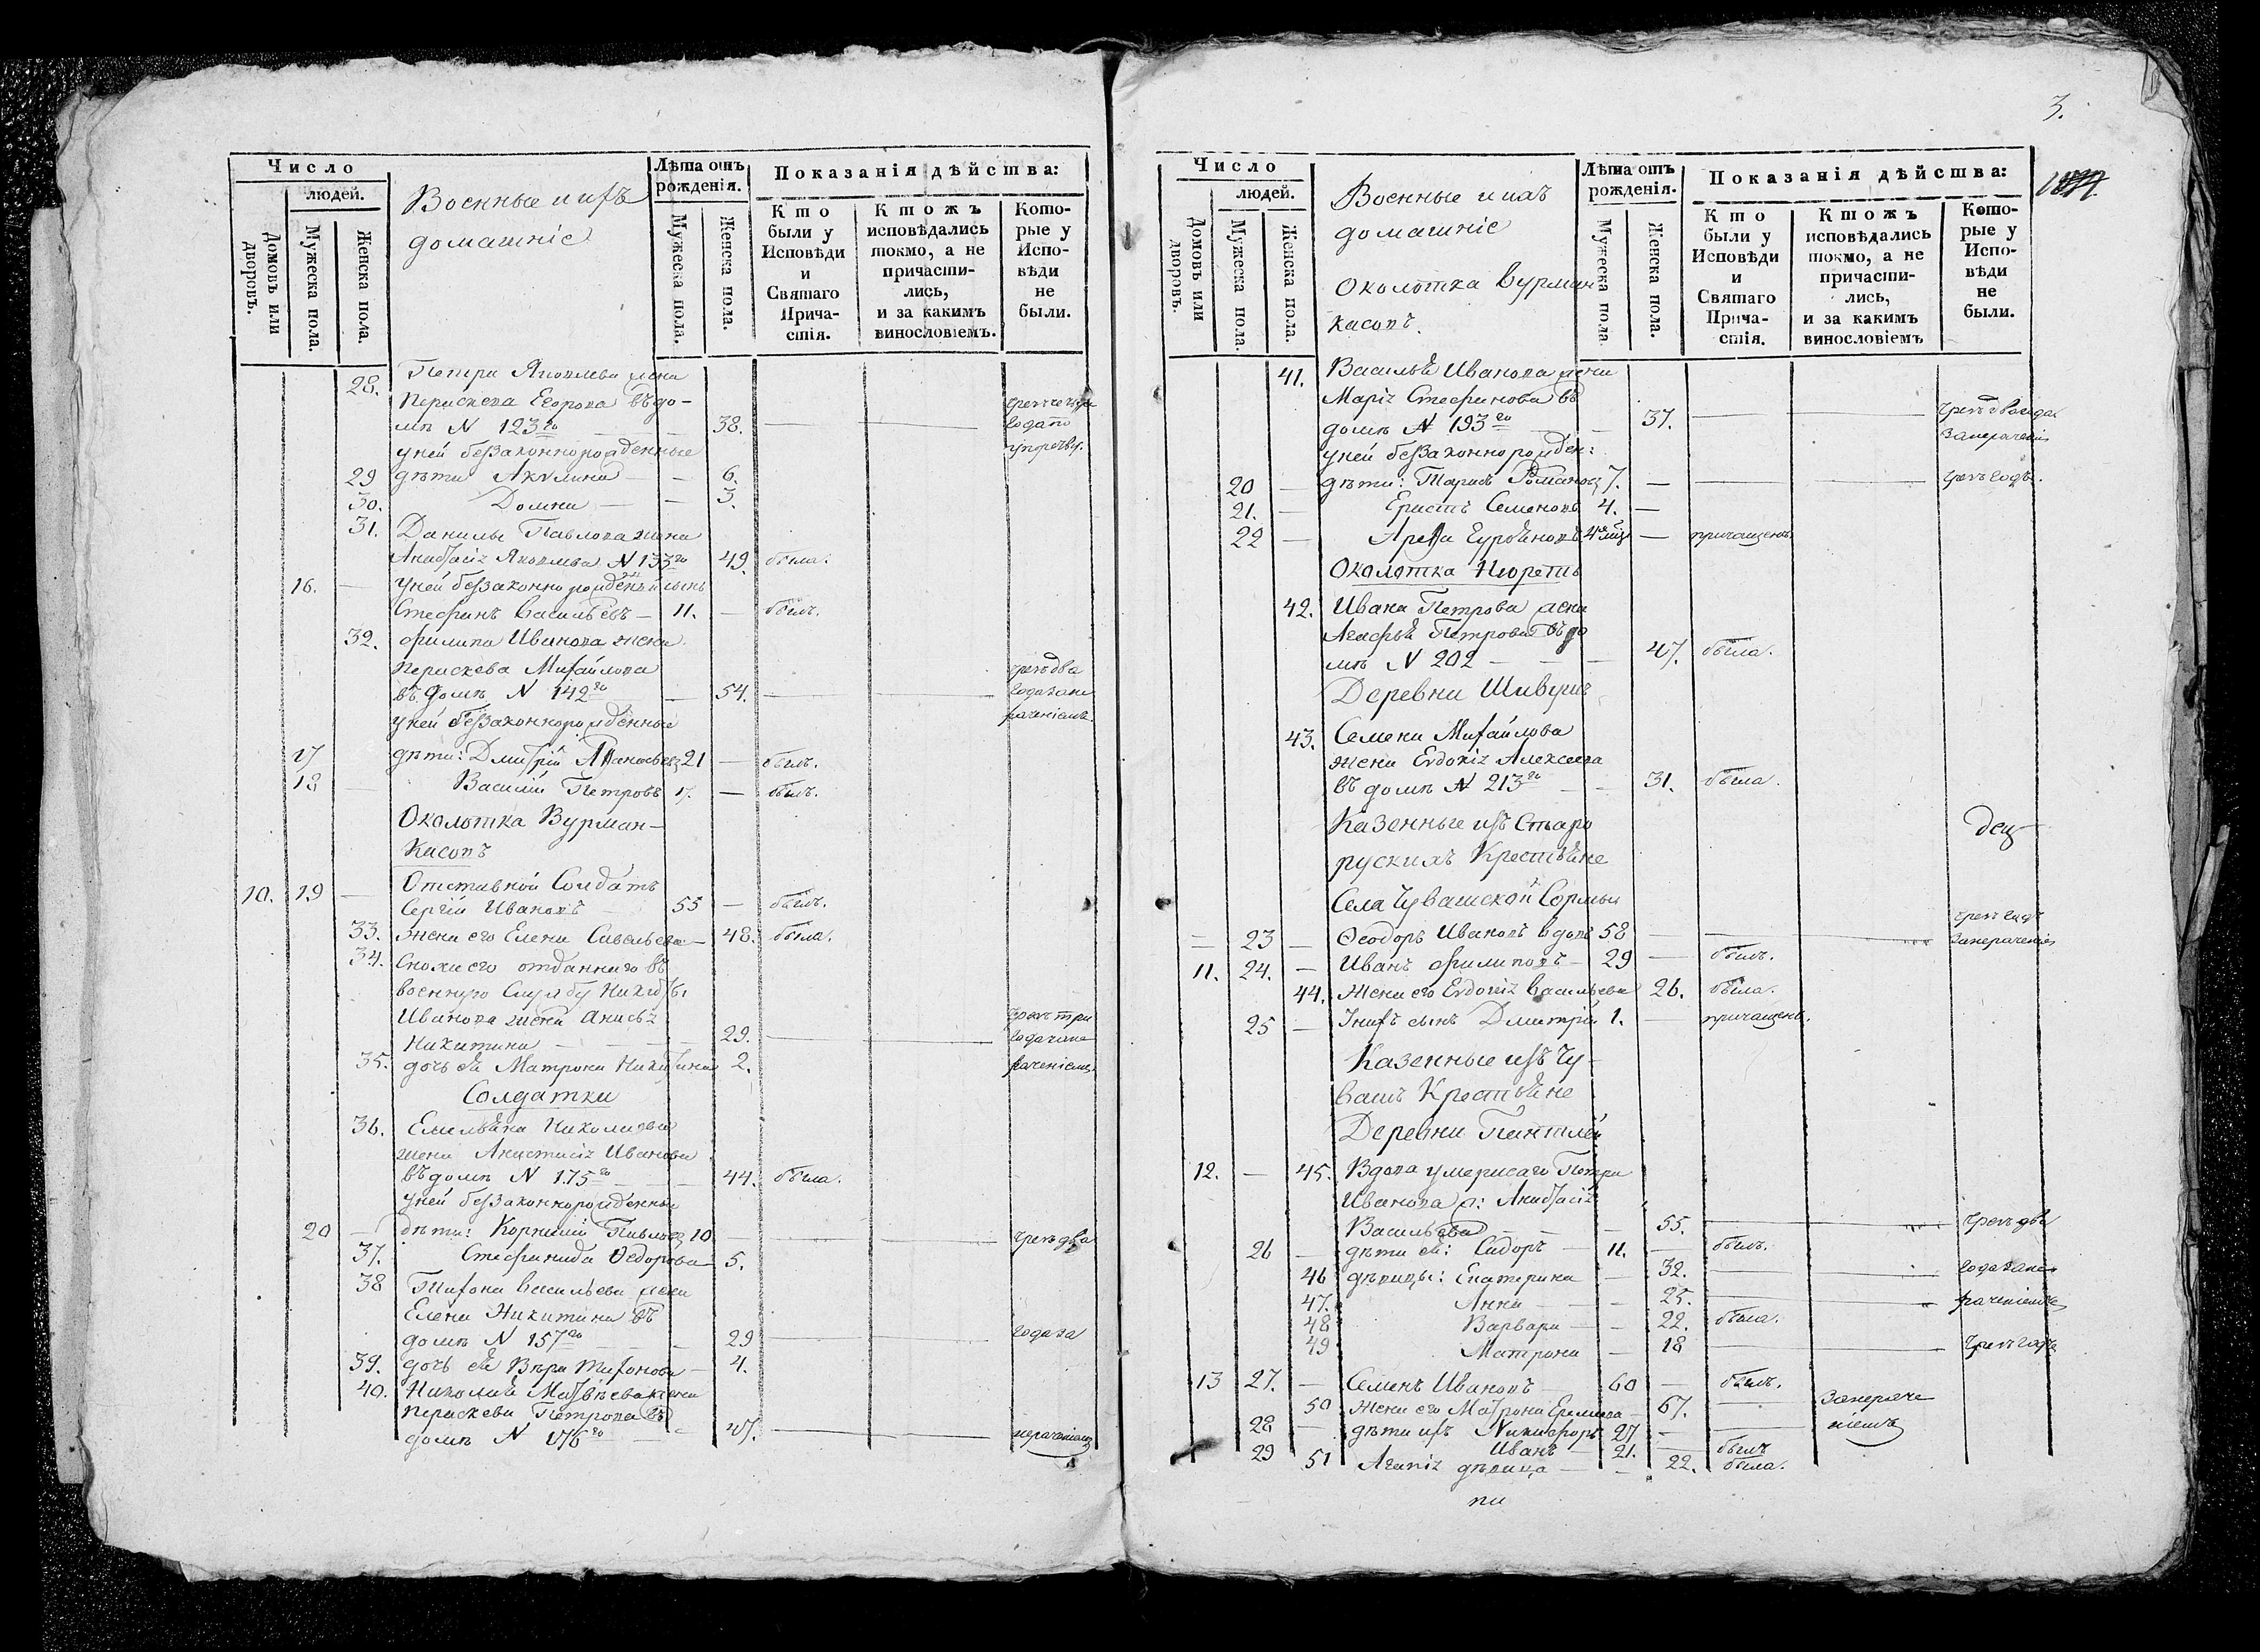 Число
людей.
Домовъ или дворовъ.
Мужеска пола.
Женска пола.
Военные и ихъ
домашніе
Лѣта отъ рожденія.
Мужеска пола.
Женска пола.
Показанія дѣйства:
Кто были у Исповѣди и Святаго Прича-стія.
Ктожъ исповѣдались токмо, а не причасти-лись, и за какимъ винословіемъ.
Кото-рые у Испо-вѣди не были.
28. Петра Яковлева жена
Параскева Егорова въ до-
мѣ N 123го — 38. года по
у ней беззаконнорожденные
29 дѣти Акулина — 6.
30. Домна — 3.
31. Данилы Павлова жена
Анастасія Яковлева N 133го 49. была.
16. — у ней беззаконнорожденный сынъ
Стефанъ Васильевъ — 11. — былъ.
32. Филипа Иванова жена
Параскева Михайлова чрезъ два
въ домѣ N 142го — 54. года зане
у ней беззаконнорожденные раченіемъ.
17 дѣти: Дмитрій 21 — былъ.
18 — Василій Петровъ 17. — былъ.
Околотка Вурман-
касовъ
10. 19 — Отставной Солдатъ
Сергій Ивановъ — 55 — былъ.
33. жена его Елена Савельева — 48. была.
34. Сноха его отданнаго въ
военную Службу
Иванова жена Анисья чрезъ три
Никитина — 29. года зане
35. дочь ея Матрона 2. раченіемъ.
Солдатки
36. Емельяна Николаева
жена Анастасія Иванова
въ домѣ N 175го — 44. была.
у ней беззаконнорожденные
20 — дѣти: Корнилій Павловъ 10 — чрезъ два
37. Стефанида Ѳедорова — 5.
38 Тихона Васильева жена
Елена Никитина въ
домѣ N 157го — 29 года за
39. дочь ея Вѣра Тихонова — 4.
40. Николая Матвѣева жена
Параскева Петрова въ
домѣ N 176го — 47. нераченіемъ
3.
Число
людей.
Домовъ или дворовъ.
Мужеска пола.
Женска пола.
Военные и ихъ
домашніе
Околотка Вурман
касовъ.
Лѣта отъ рожденія.
Мужеска пола.
Женска пола.
Показанія дѣйства:
Кто были у Исповѣди и Святаго Прича-стія.
Ктожъ исповѣдались токмо, а не причасти-лись, и за какимъ винословіемъ
Кото-рые у Испо-вѣди не были.
41. Василья Иванова жена
Марія Стефанова въ
домѣ N 193го — 37. чрезъ два года
у ней беззаконнорожден: занераченіе
20 — дѣти: Романовъ 7. — чрезъ годъ.
21. — Семеновъ 4. —
22 — — причащенъ
Околотка
42. Ивана Петрова жена
Агафья Петрова въ до
мѣ N 202 — 47. была.
Деревни
43. Семена Михайлова
жена Евдокія Алексеева
въ домѣ N 213го — 31. была.
Казенные изъ Старо
рускихъ Крестьяне
Села Чувашской Сормы чрезъ годъ
23 — Ѳеодоръ Ивановъ вдовъ 58 — занераченіе
11. 24. — Иванъ Филиповъ — 29 — былъ.
44. Жена его Евдокія Васильева 26. была.
25 — У нихъ сынъ Дмитрій 1. — причащенъ.
Казенные изъ Чу-
вашъ Крестьяне
Деревни
12. — 45. Вдова умершаго Петра
Иванова ж: Анастасія
Васильева — 55. чрезъ два
26 — дѣти ея: Сидоръ — 11. — былъ.
46 дѣвицы: Екатерина — 32. года зане
47. Анна — 25. раченіемъ
48 Варвара — 22. была.
49 Матрона — 18 чрезъ годъ
13 27. — Семенъ Ивановъ — 60 — былъ.
50 Жена его Матрона 67. — занераче
28 — дѣти ихъ Никифоръ 27 — ніемъ
29 Иванъ — 21. — былъ
51 дѣвица — 22. была.